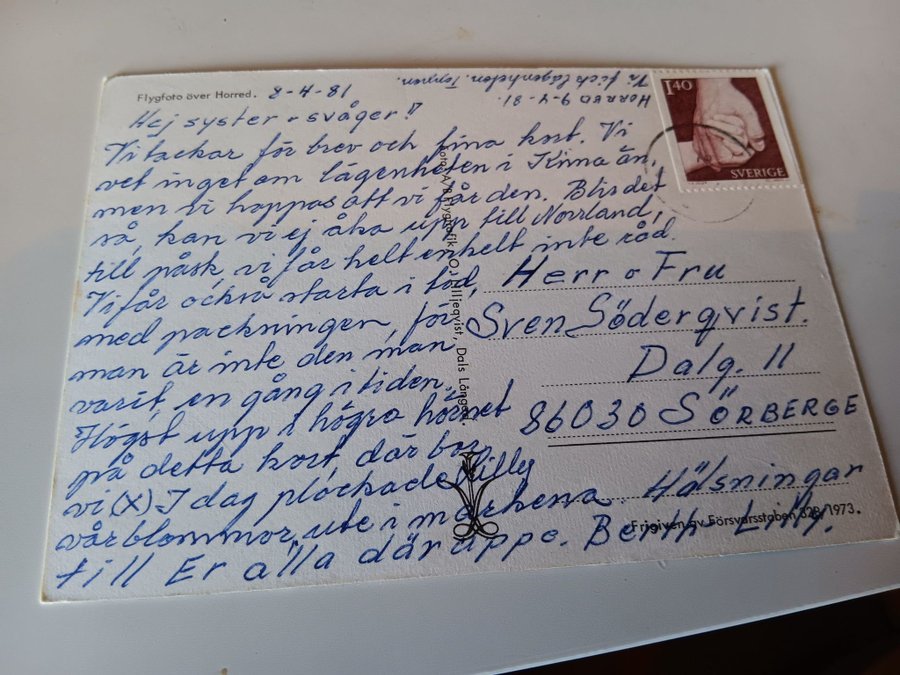 Flygfoto över Horred. 8-4-81
Hej syster o svåger!!
Vi tackar för brev och fina kort. Vi
vet inget om lägenheten i Kinna än,
men vi hoppas att vi får den. Blir det
så, kan vi ej åka upp till Norrland,
till påsk, vi får helt enkelt inte råd.
Vi får också starta i tid,
med packningen, för
man är inte den man
varit, en gång i tiden.
Högst upp i högra hörnet
på detta kort, där bor
vi (X) I dag plockade Lilly
vårblommor, ute i markena. Hälsningar
till Er alla där uppe. Berth Lilly.
HORRED 9-4-81.
Vi fick lägenheten.
1 40
SVERIGE
Herr o Fru
Sven Söderqvist.
Dalg. 11
86030 SÖRBERGE
Frigiven av Försvarsstaben 328/1973.